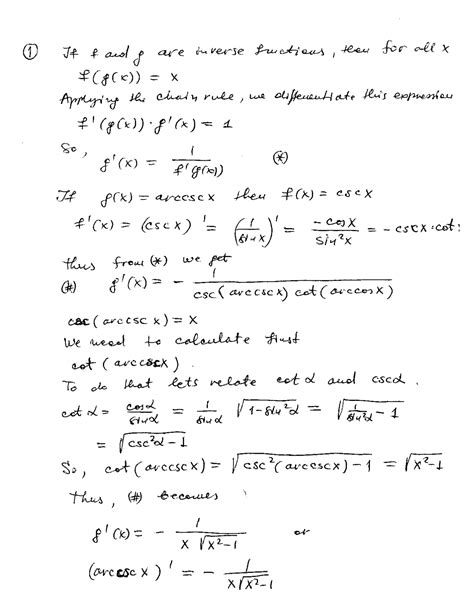 ① If f and g are inverse functions, then for all x
f(g(x)) = x
Applying the chain rule, we differentiate this expression
f'(g(x)) · g'(x) = 1
So, g'(x) = 1/f'(g(x)) (*)
If g(x) = arccscx then f(x) = cscx
f'(x) = (cscx)' = (1/sinx)' = -cosx/sin²x = -cscx·cot
thus from (*) we get
(#) g'(x) = - 1/(csc(arccscx) cot(arccosx))
csc(arccsc x) = x
We need to calculate first
cot(arccscx).
To do that lets relate cotα and cscα.
cotα = cosα/sinα = 1/sinα √(1-sin²α) = √(1/sin²α - 1)
= √(csc²α-1)
So, cot(arccscx) = √(csc²(arccscx)-1) = √(x²-1)
Thus, (#) becomes
g'(x) = - 1/(x√(x²-1)) or
(arccscx)' = - 1/(x√(x²-1))